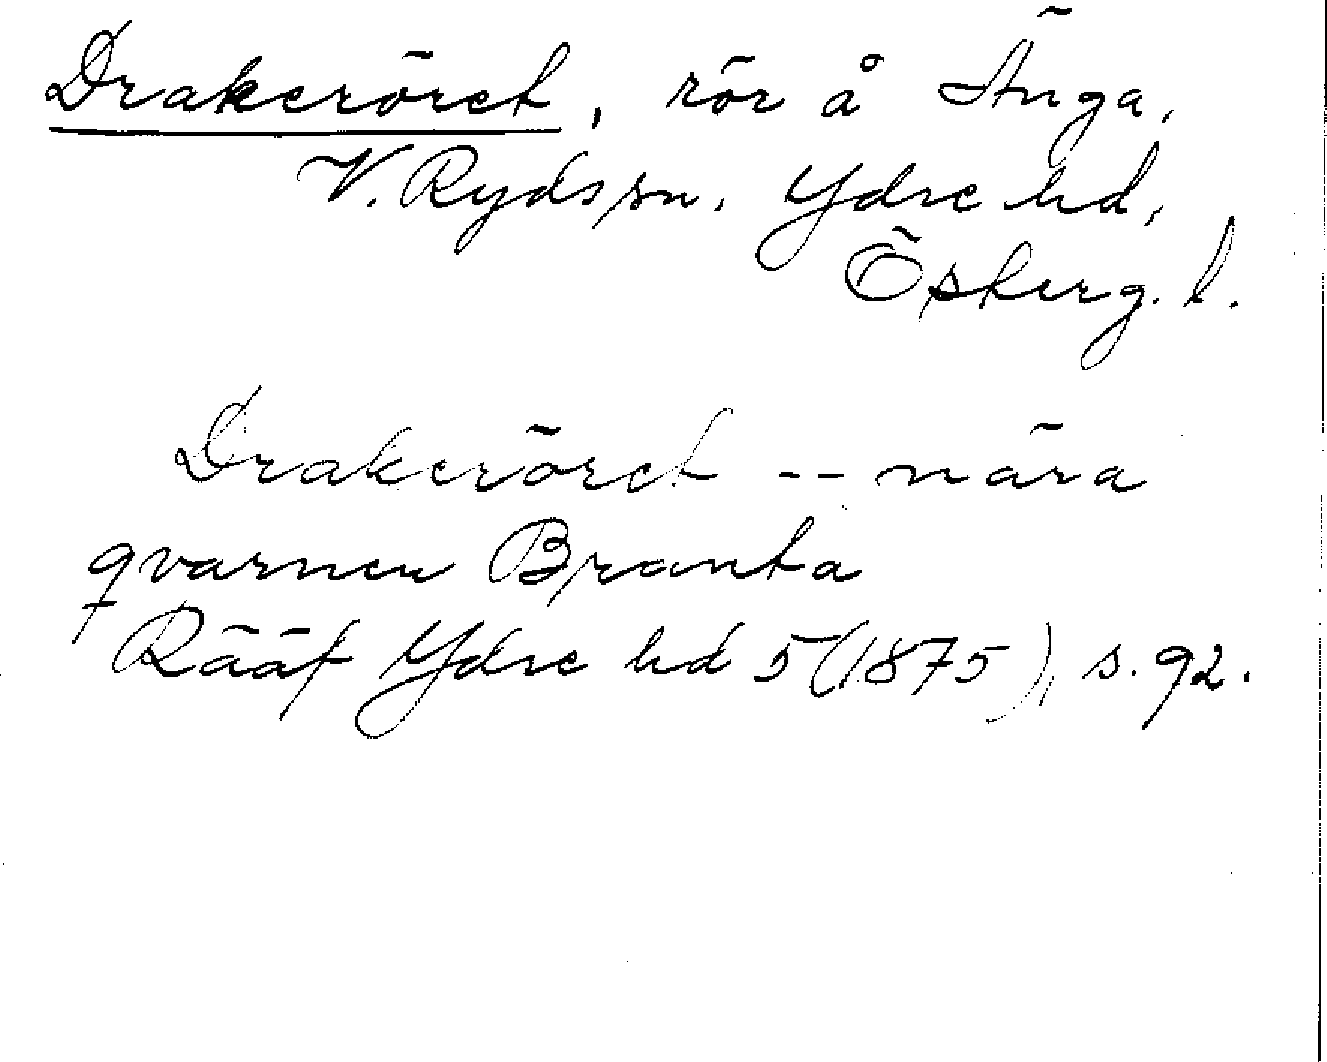 Drakeröret, rör å Änga,
V. Ryds sn. Ydre hd,
Österg. l.
Drakeröret -- nära
qvarnen Branta
Rääf Ydre hd 5 (1875), s. 92.